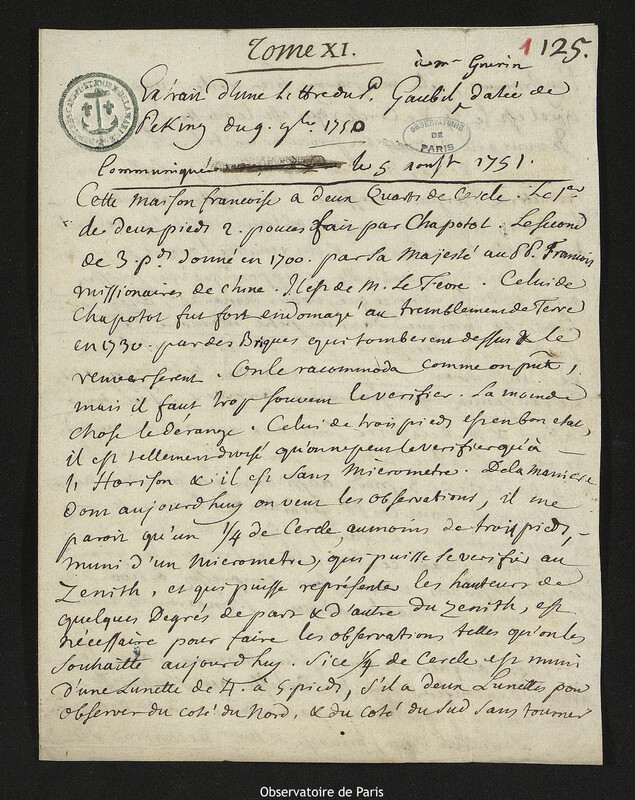 Tome XI.
1 125.
à mr Guerin
Extrait d'une Lettre du P. Gaubil, datée de
Peking du 9. 9bre 1750
OBSERVATOIRE
DE
PARIS
Communiqué le 5 aoust 1751.
Cette maison francoise a deux Quarts de Cercle. Le 1er
de deux pieds 2. pouces fait par Chapotot. Le second
de 3. pds donné en 1700. par Sa Majesté au PP. Francois
missionaires de chine. Il est de M. Le Fevre. Celui de
Chapotot fut fort endomagé au tremblement de Terre
en 1730. par des Briques qui tomberent dessus & le
renverserent. On le racommoda comme on put,
mais il faut trop souvent le verifier. La moindre
chose le dérange. Celui de trois pieds est en bon etat,
il est tellement divisé qu'on ne peut le verifier qu'à
l'Horison & il est sans Micrometre. De la maniere
dont aujourd'huy on veut les observations, il me
paroit qu'un 1/4 de Cercle, au moins de trois pieds,
muni d'un Micrometre, qui puisse se verifier au
Zenith, et qui puisse représenter les hauteurs de
quelques Degrés de part & d'autre du zenith, est
nécessaire pour faire les observations telles qu'on les
souhaitte aujourd'huy. Si ce 1/4 de Cercle est muni
d'une Lunette de 4. à 5 pieds, s'il a deux Lunettes pour
observer du coté du Nord, & du coté du Sud sans tourner
Observatoire de Paris